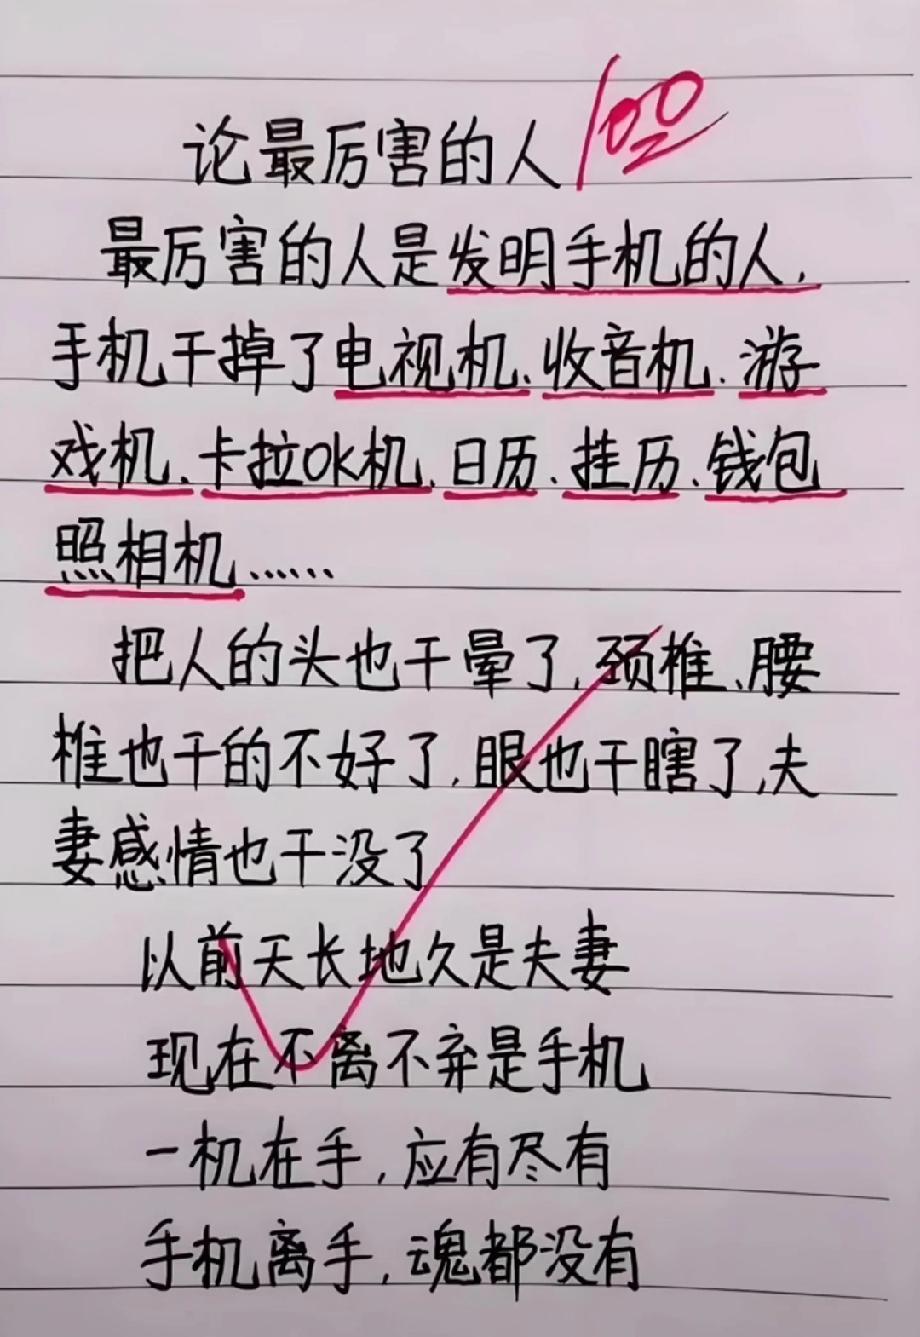 论最厉害的人 100
最厉害的人是发明手机的人,
手机干掉了电视机、收音机、游
戏机、卡拉OK机、日历、挂历、钱包
照相机……
把人的头也干晕了,颈椎、腰
椎也干的不好了,眼也干瞎了,夫
妻感情也干没了
以前天长地久是夫妻
现在不离不弃是手机
一机在手,应有尽有
手机离手,魂都没有